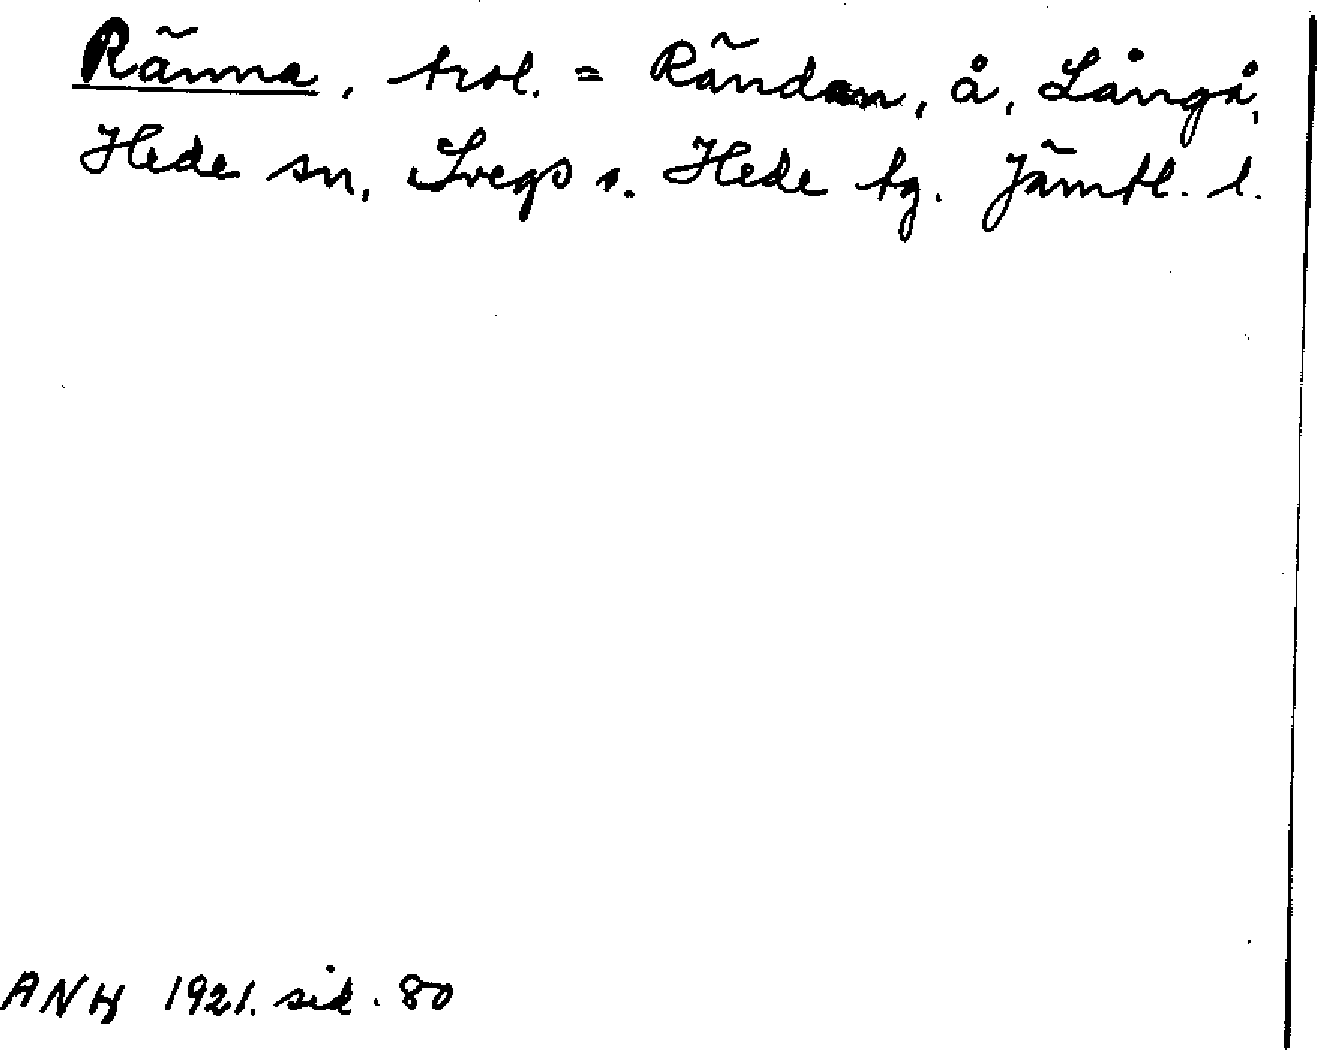 Ränna, trol. = Rändan, å, Långå,
Hede sn, Svegs o. Hede tg. Jämtl. l.
ANH 1921. sid. 80